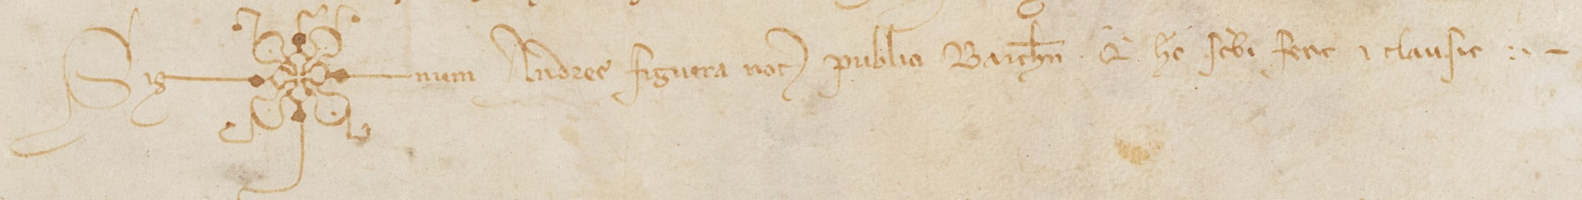 Sig num Andree figuera not publici Barchn Q he scbi fecit ⁊ clausit :·–